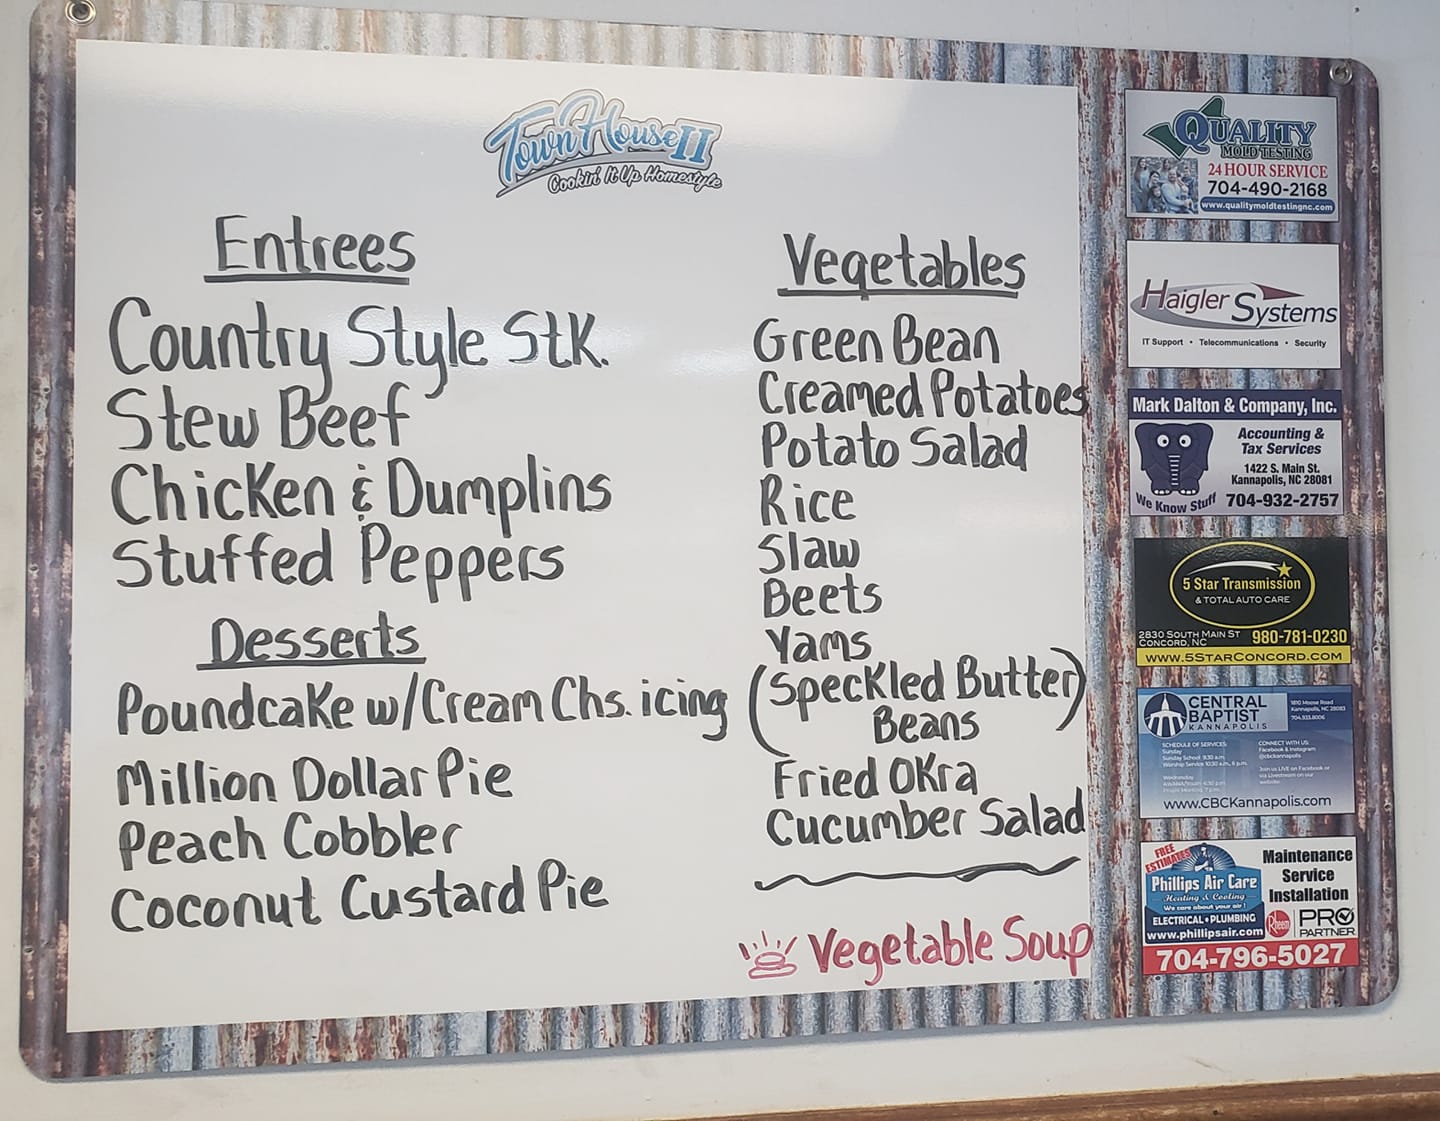 Town House II
Cookin' It Up Homestyle
Entrees
Country Style Stk.
Stew Beef
Chicken & Dumplins
Stuffed Peppers
Desserts
Poundcake w/Cream Chs. icing
Million Dollar Pie
Peach Cobbler
Coconut Custard Pie
Vegetables
Green Bean
Creamed Potatoes
Potato Salad
Rice
Slaw
Beets
Yams
(Speckled Butter)
Beans
Fried Okra
Cucumber Salad
Vegetable Soup
QUALITY
MOLD TESTING
24 HOUR SERVICE
704-490-2168
www.qualitymoldtestingnc.com
Haigler Systems
IT Support • Telecommunications • Security
Mark Dalton & Company, Inc.
Accounting &
Tax Services
1422 S. Main St.
Kannapolis, NC 28081
We Know Stuff
704-932-2757
5 Star Transmission
& TOTAL AUTO CARE
2830 SOUTH MAIN ST
CONCORD, NC
980-781-0230
WWW.5STARCONCORD.COM
CENTRAL
BAPTIST
KANNAPOLIS
1810 Moose Road
Kannapolis, NC 28083
704.933.8006
SCHEDULE OF SERVICES:
Sunday
Sunday School 9:30 a.m.
Worship Service 10:30 a.m., 6 p.m.
Wednesday
CONNECT WITH US:
Facebook & Instagram
@cbckannapolis
Join us LIVE on Facebook or
via Livestream on our
website.
www.CBCKannapolis.com
FREE
ESTIMATES
Phillips Air Care
Heating & Cooling
We care about your air!
ELECTRICAL • PLUMBING
www.phillipsair.com
Maintenance
Service
Installation
Rheem
PRO
PARTNER
704-796-5027